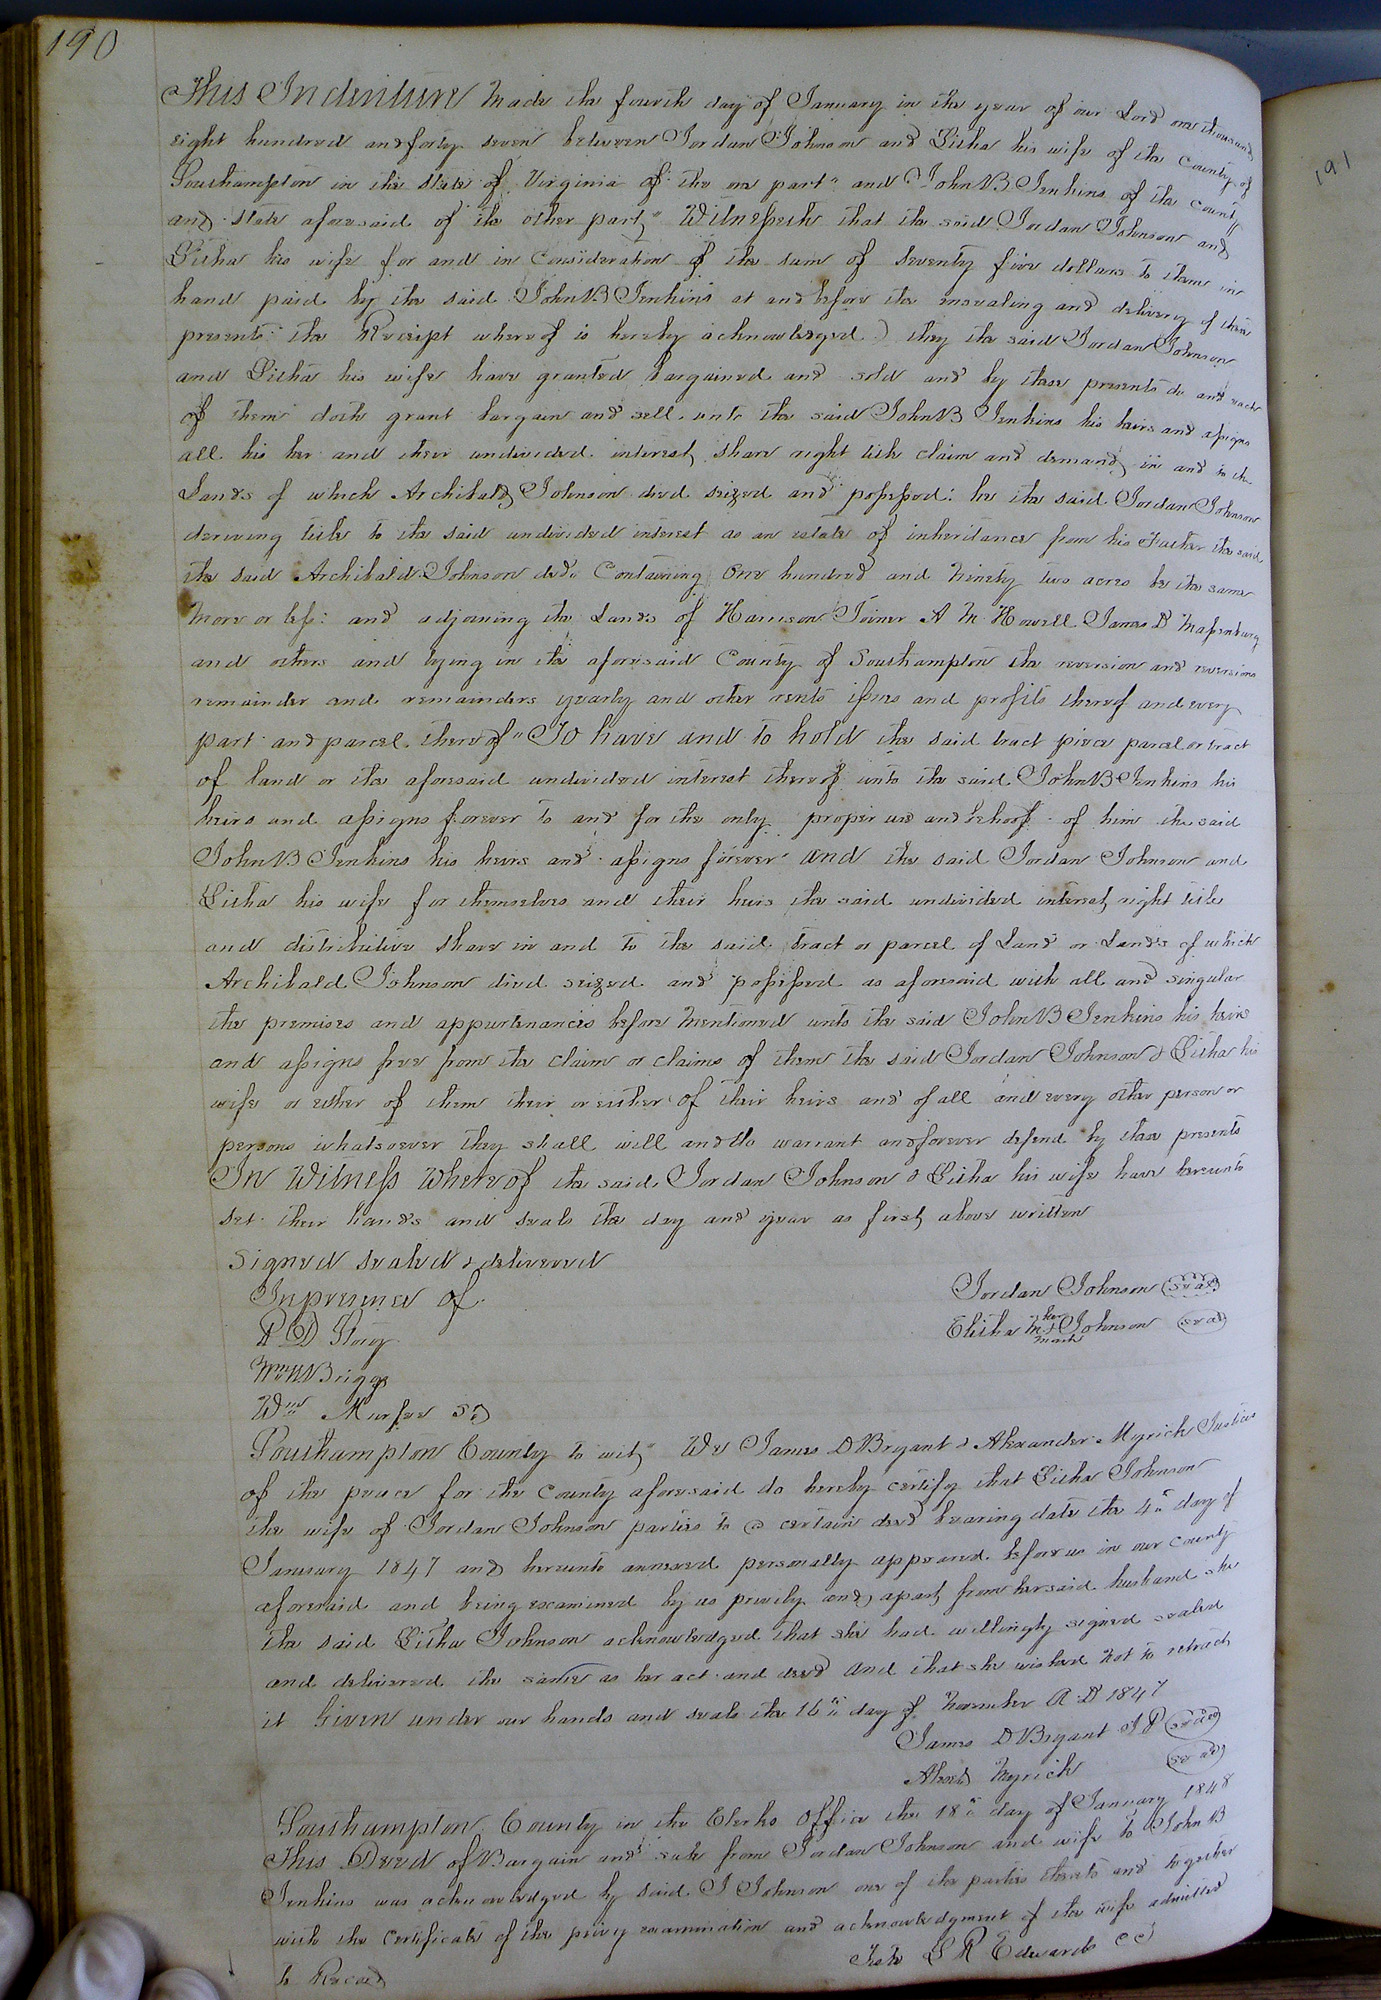 190
This Indenture Made the fourth day of January in the year of our Lord one thousand
eight hundred and forty seven between Jordan Johnson and Litha his wife of the County of
Southampton in the State of Virginia of the one part" and John B Jenkins of the County
and State aforesaid of the other part" Witnesseth that the said Jordan Johnson and
Litha his wife for and in Consideration of the sum of Seventy five dollars to them in
hand paid by the said John B Jenkins at and before the ensealing and delivery of these
presents the Receipt whereof is hereby acknowledged ) they the said Jordan Johnson
and Litha his wife have granted bargained and sold and by these presents do and each
of them doth grant bargain and sell unto the said John B Jenkins his heirs and assigns
all his her and their undivided interest share right title claim and demand in and to the
Lands of which Archibald Johnson died seized and possessed: he the said Jordan Johnson
deriving title to the said undivided interest as an estate of inheritance from his Father the said
the said Archibald Johnson decd. Containing One hundred and Ninety two acres be the same
More or less: and adjoining the Lands of Harrison Joiner A M Howell James D Massenburg
and others and lying in the aforesaid County of Southampton the reversion and reversions
remainder and remainders yearly and other rents issues and profits thereof and every
part and parcel thereof" To have and to hold the said tract piece parcel or tract
of land or the aforesaid undivided interest thereof unto the said John B Jenkins his
heirs and assigns forever to and for the only proper use and behoof of him the said
John B Jenkins his heirs and assigns forever and the said Jordan Johnson and
Litha his wife for themselves and their heirs the said undivided interest right title
and distributive share in and to the said tract or parcel of Land or Lands of which
Archibald Johnson died seized and possessed as aforesaid with all and singular
the premises and appurtenances before Mentioned unto the said John B Jenkins his heirs
and assigns free from the claim or claims of them the said Jordan Johnson & Litha his
wife or either of them their or either of their heirs and of all and every other person or
persons whatsoever they shall will and do warrant and forever defend by these presents
In Witness Whereof the said Jordan Johnson & Litha his wife have hereunto
set their hands and seals the day and year as first above written
Signed sealed & delivered
In presence of
Jordan Johnson (seal)
her
Elitha M + Johnson (seal)
mark
Wm H Briggs
Wm Murfee Sr
Southampton County to wit" We James D Bryant & Alexander Myrick Justices
of the peace for the County aforesaid do hereby certify that Litha Johnson
the wife of Jordan Johnson parties to a certain deed bearing date the 4th day of
January 1847 and hereunto annexed personally appeared before us in our County
aforesaid and being examined by us privily and apart from her said husband she
the said Litha Johnson acknowledged that she had willingly signed sealed
and delivered the same as her act and deed and that she wished not to retract
it Given under our hands and seals the 16th day of November A D 1847
James D Bryant J P (seal)
Alexd Myrick (seal)
Southampton County in the Clerks Office the 18th day of January 1848
This Deed of Bargain and sale from Jordan Johnson and wife to John B
Jenkins was acknowledged by said J Johnson one of the parties thereto and together
with the Certificate of the privy examination and acknowledgment of the wife admitted
to Record
Teste L R Edwards CC
191